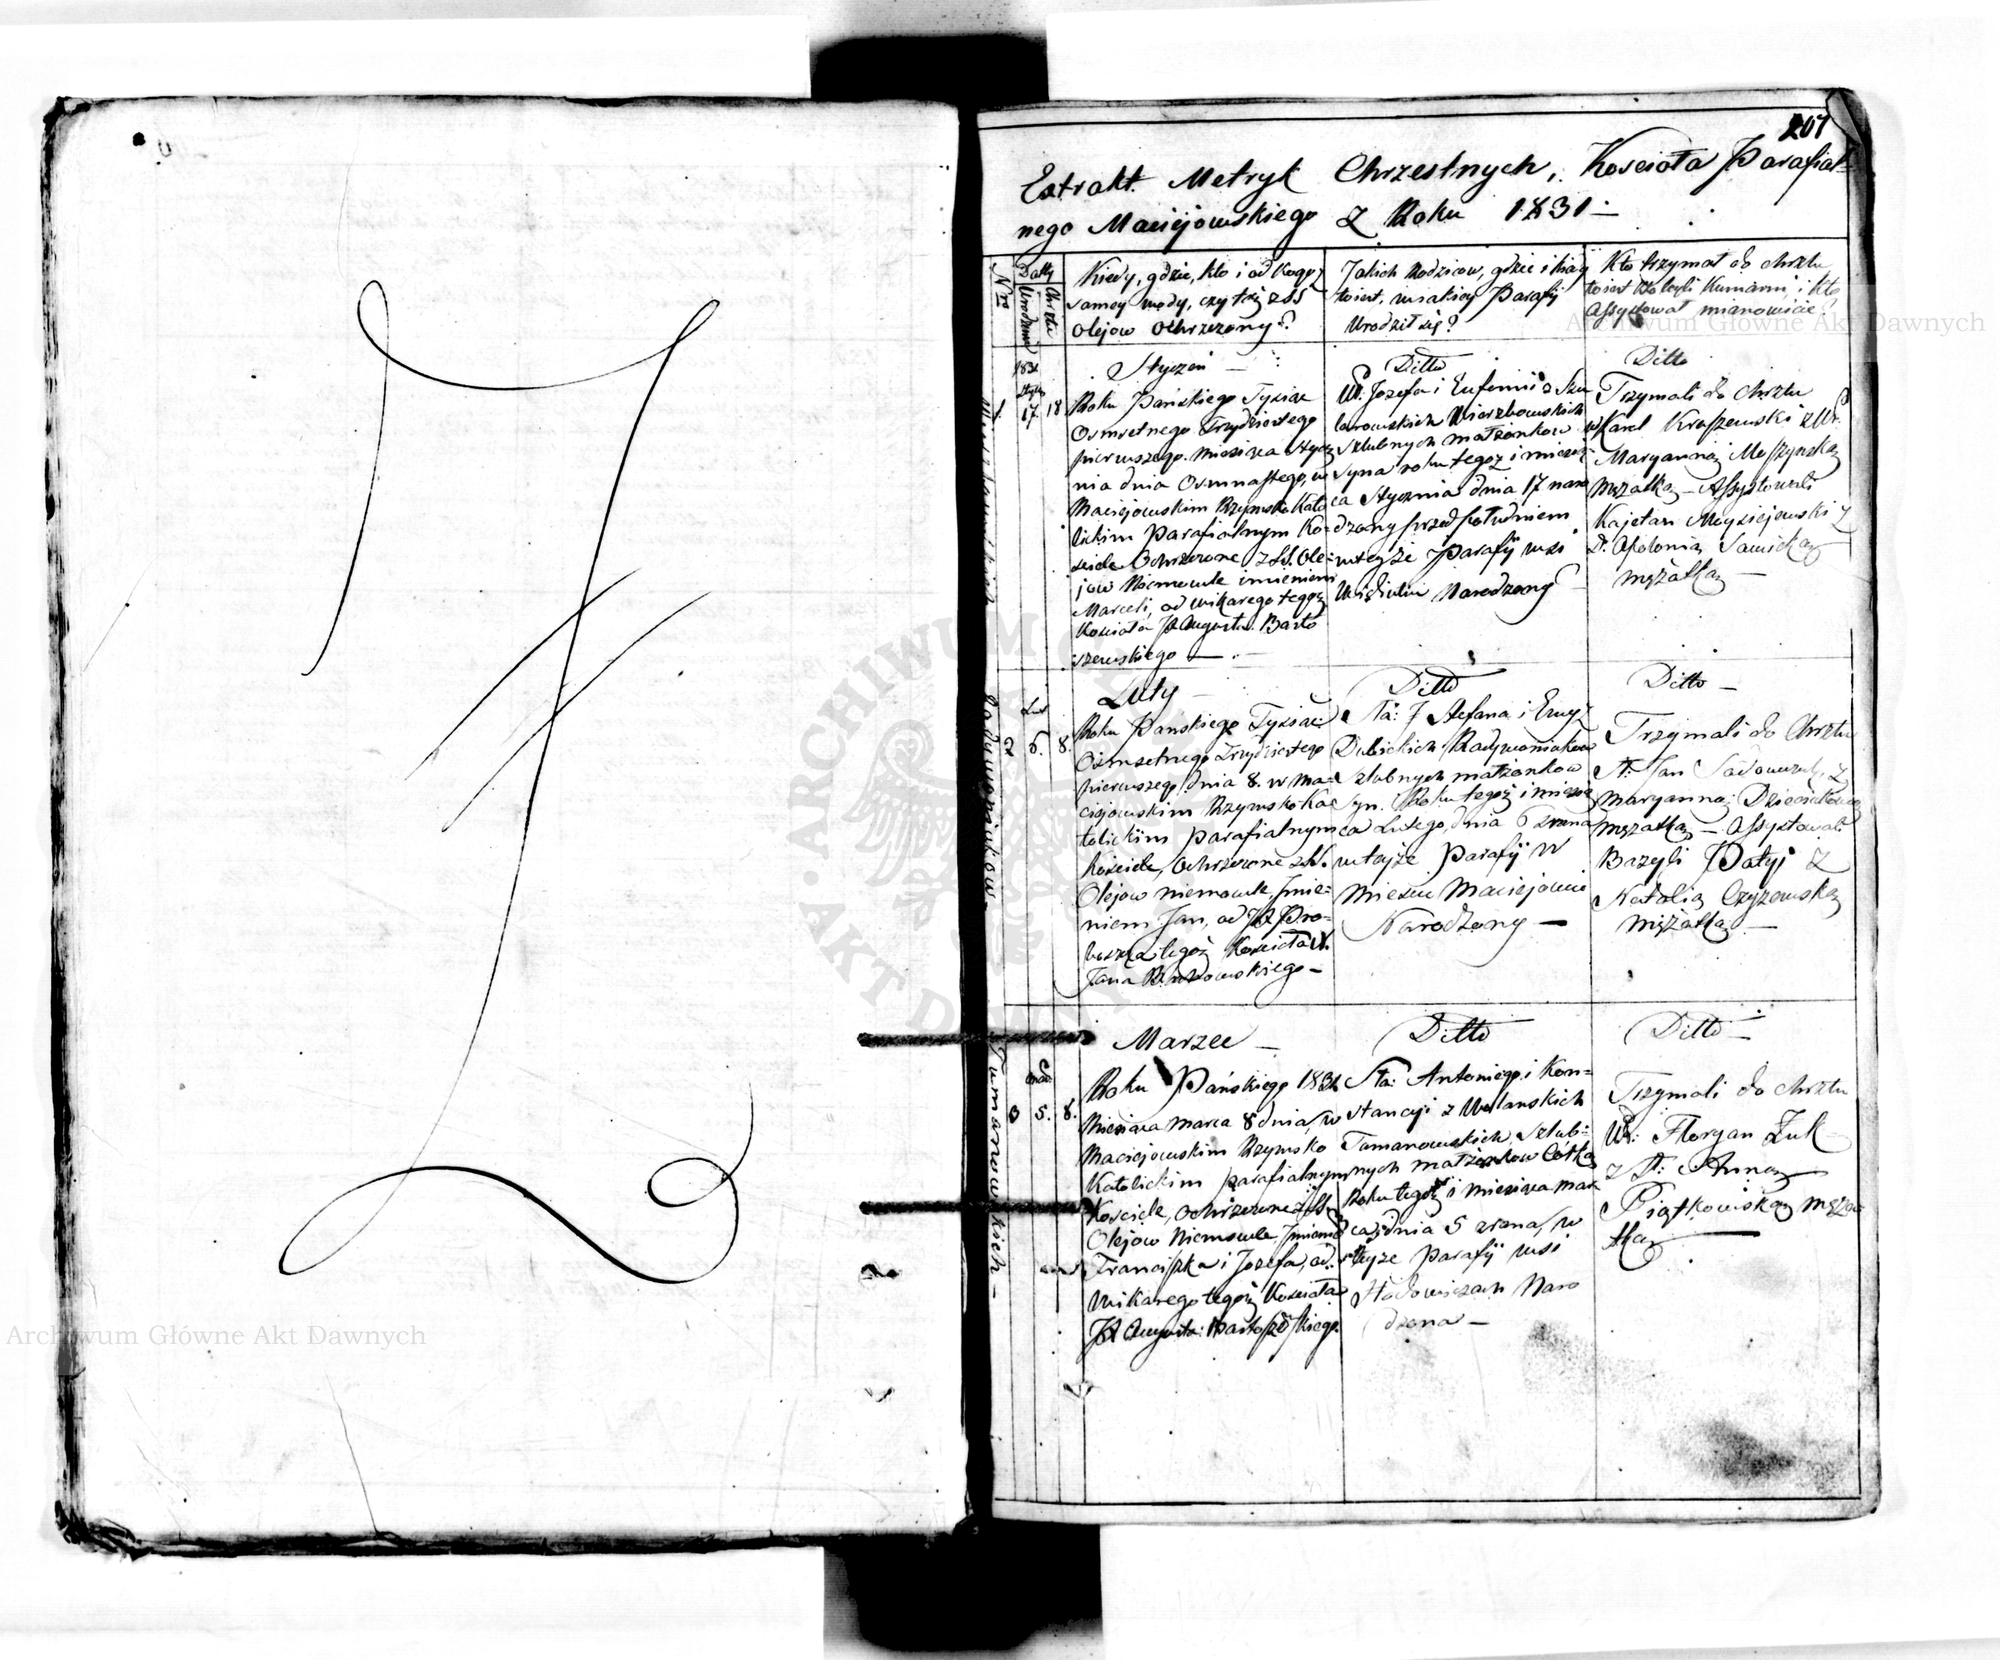 207
Extrakt Metryk Chrzestnych, Kościoła Parafial-
nego Maciejowskiego z Roku 1831 –
Nro
Datty
Urodzenia
Chrztu
Kiedy, gdzie, kto i od kogo, z
samey wody, czy też z SS
Olejow Ochrzczony?
Jakich Rodzicow, gdzie i kiedy
to iest, w iakiey Parafij
Urodził się?
Kto trzymał do chrztu
to iest kto byli Kumami, i kto
Assystował mianowicie?
Wierzbowskich
1831
1.
17
18
Styczeń –
Roku Pańskiego Tysiąc
Osmsetnego Trzydziestego
pierwszego miesiąca Stycz
nia dnia Osmnastego, w
Maciejowskim Rzymsko Kato
lickim Parafialnym Ko-
ściele Ochrzczone z SS. Ole-
jow Niemowle imieniem
Marceli, od wikarego tegoż
Kościoła JX August. Barto
szewskiego – . –
Ditto
W. Jozefa i Eufemii z
Wierzbowskich
Szlubnych małżonkow
Syna roku tegoż i miesią
ca Stycznia dnia 17 naro
dzony przed południem
w teyże Parafij wsi
Narodzony
Ditto
Trzymali do Chrztu
Karol Kraszewski z W.
Maryanną Moszyńską
Mężatką – Assystowali
Kajetan z
Apolonią Sawicką
mężatką –
Radywoniukow
2
6.
8.
Luty –
Roku Pańskiego Tysiąc
Osmsetnego Trzydziestego
pierwszego dnia 8. w Ma-
ciejowskim Rzymsko Ka
tolickim parafialnym
Kościele, Ochrzczone z SS.
Olejow niemowle, Jmie-
niem Jan, od JX Pro-
boszcza tegoż Kościoła
Jana –
Ditto
Stefana i
Dubickich Radywoniukow
szlubnych małżonkow
Syn. Roku tegoż i miesią
ca Lutego, dnia 6 zrana
w tejże Parafij w
Miescie Maciejowie
Narodzony –
Ditto –
Trzymali do Chrztu
Jan z
Maryanną
mężatką – Assystowali
Bazyli Patyj z
Natalią Czyżewską
Mężatką –
Tumanowskich –
3
5.
8.
Marzec –
Roku Pańskiego 1831
Miesiąca Marca 8 dnia, w
Maciejowskim Rzymsko
Katolickim parafialnym
Kościele, Ochrzczone z SS
Olejow Niemowle, Jmieniem
Franciszka i Jozefa, od
Wikarego tegoż Kościoła
JX August: Bartoszewskiego.
Ditto
Sła: Antoniego i Kon-
stancyi z Wolanskich
Tumanowskich, Szlub-
nych małżonkow Corka
Roku tegoż i miesiąca Mar
ca, dnia 5 zrana, w
teyże Parafij wsi
Hołowiszach Naro
dzona –
Ditto –
Trzymali do Chrztu
W: Floryan Żuk –
z Anną
Piątkowską Męża
tką –
Archiwum Główne Akt Dawnych
Archiwum Główne Akt Dawnych
ARCHIWUM GŁÓWNE AKT DAWNYCH